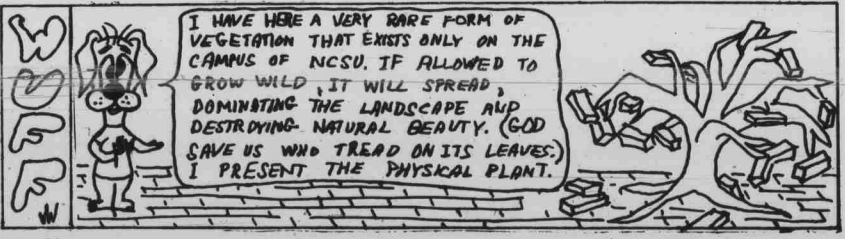 I HAVE HERE A VERY RARE FORM OF
VEGETATION THAT EXISTS ONLY ON THE
CAMPUS OF NCSU. IF ALLOWED TO
GROW WILD, IT WILL SPREAD,
DOMINATING THE LANDSCAPE AND
DESTROYING NATURAL BEAUTY. (GOD
SAVE US WHO TREAD ON ITS LEAVES.)
I PRESENT THE PHYSICAL PLANT.